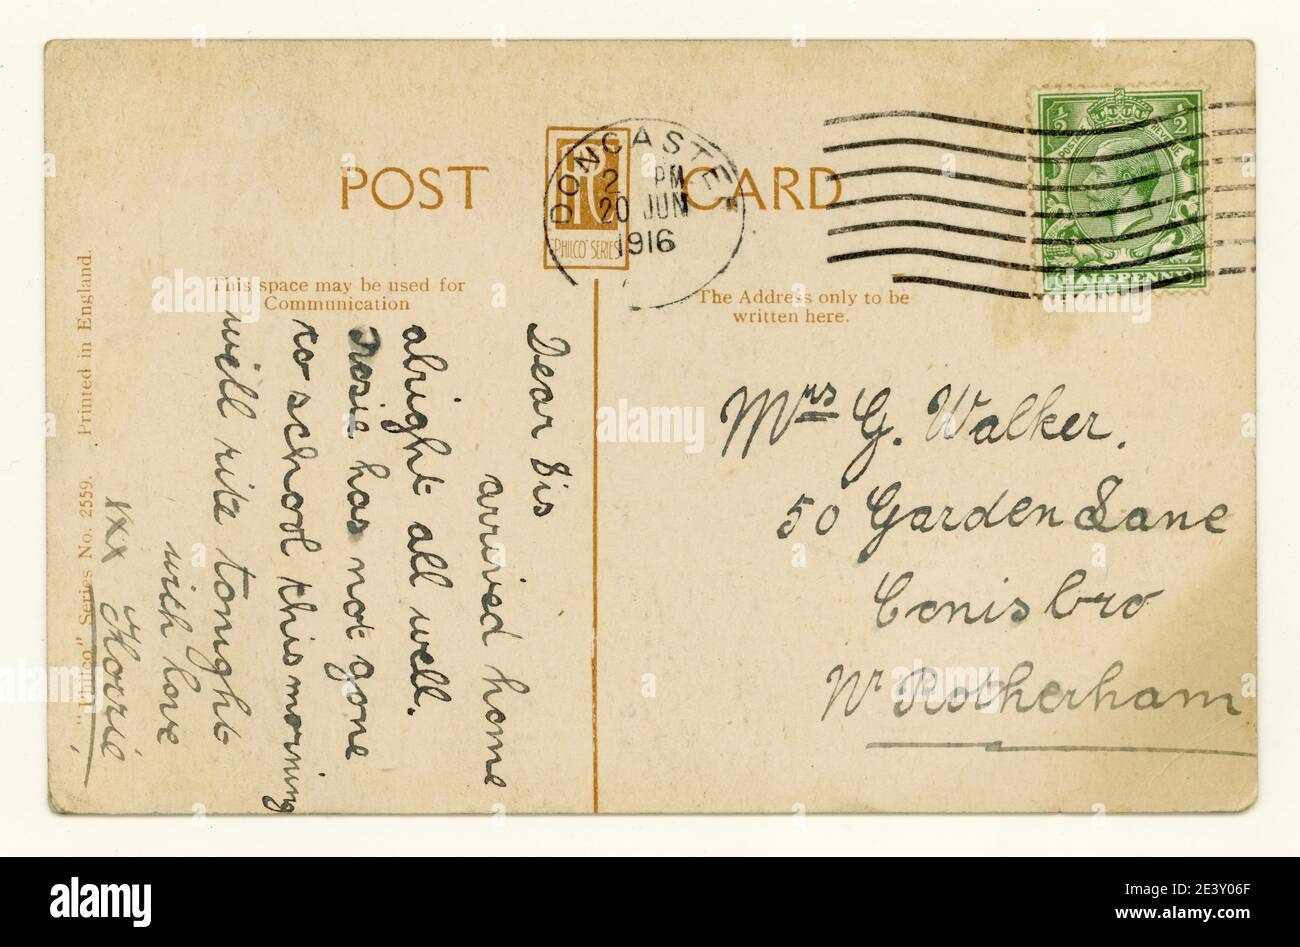 POST CARD
PHILCO SERIES
DONCASTER
2 PM
20 JUN
1916
1/2 1/2
POSTAGE REVENUE
HALFPENNY
This space may be used for
Communication
The Address only to be
written here.
Dear Sis
arrived home
alright all well.
Rosie has not gone
to school this morning
will rite tonight
with love
xxx Horrie
Mrs G. Walker.
50 Garden Lane
Conisbro
Nr Rotherham
"Philco" Series No. 2559. Printed in England.
alamy
alamy
Image ID: 2E3Y06F
www.alamy.com